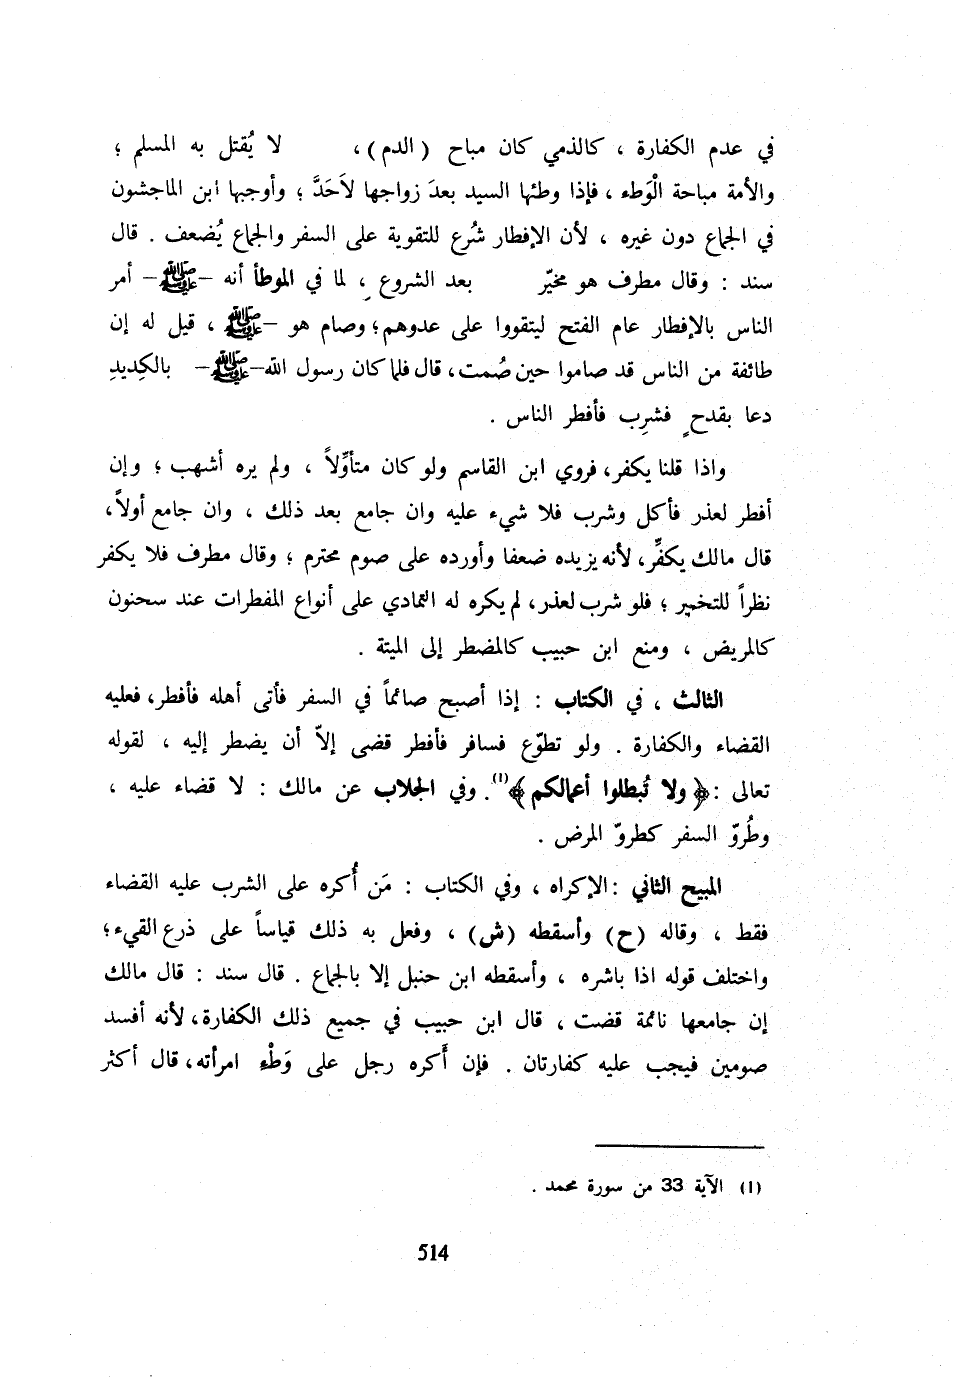 في عدم الكفارة ، كالذمي كان مباح (الدم)، لا يُقتل به المسلم ؛
والأمة مباحة الْوَطء ، فإذا وطئها السيد بعدَ زواجها لاَحَدَّ ؛ وأوجبها ابن الماجشون
في الجماع دون غيره ، لأن الإفطار شُرع للتقوية على السفر والجماع يُضعف . قال
سند : وقال مطرف هو مخيّر بعد الشروع ، لما في الموطأ أنه –ﷺ– أمر
الناس بالإفطار عام الفتح ليتقووا على عدوهم؛ وصام هو –ﷺ ، قيل له إن
طائفة من الناس قد صاموا حين صُمت، قال فلما كان رسول الله–ﷺ– بالكِديدِ
دعا بقدحٍ فشرِب فأفطر الناس .
واذا قلنا يكفر، فروي ابن القاسم ولو كان متأوِّلاً ، ولم يره أشهب ؛ وإن
أفطر لعذر فأكل وشرب فلا شيء عليه وان جامع بعد ذلك ، وان جامع أولاً،
قال مالك يكفِّر، لأنه يزيده ضعفا وأورده على صوم محترم ؛ وقال مطرف فلا يكفر
نظراً للتخيير ؛ فلو شرب لعذر، لم يكره له التمادي على أنواع المفطرات عند سحنون
كالمريض ، ومنع ابن حبيب كالمضطر إلى الميتة .
الثالث ، في الكتاب : إذا أصبح صائماً في السفر فأتى أهله فأفطر، فعليه
القضاء والكفارة . ولو تطوّع فسافر فأفطر قضى إلاّ أن يضطر إليه ، لقوله
تعالى :﴿ولا تُبطلوا أعمالكم﴾(1). وفي الجلاب عن مالك : لا قضاء عليه ،
وطُروّ السفر كطروّ المرض .
المبيح الثاني : الإكراه ، وفي الكتاب : مَن أُكره على الشرب عليه القضاء
فقط ، وقاله (ح) وأسقطه (ش) ، وفعل به ذلك قياساً على ذرع القيء؛
واختلف قوله اذا باشره ، وأسقطه ابن حنبل إلا بالجماع . قال سند : قال مالك
إن جامعها نائمة قضت ، قال ابن حبيب في جميع ذلك الكفارة، لأنه أفسد
صومين فيجب عليه كفارتان . فإن أَكره رجل على وَطْءِ امرأته، قال أكثر
(1) الآية 33 من سورة محمد .
514